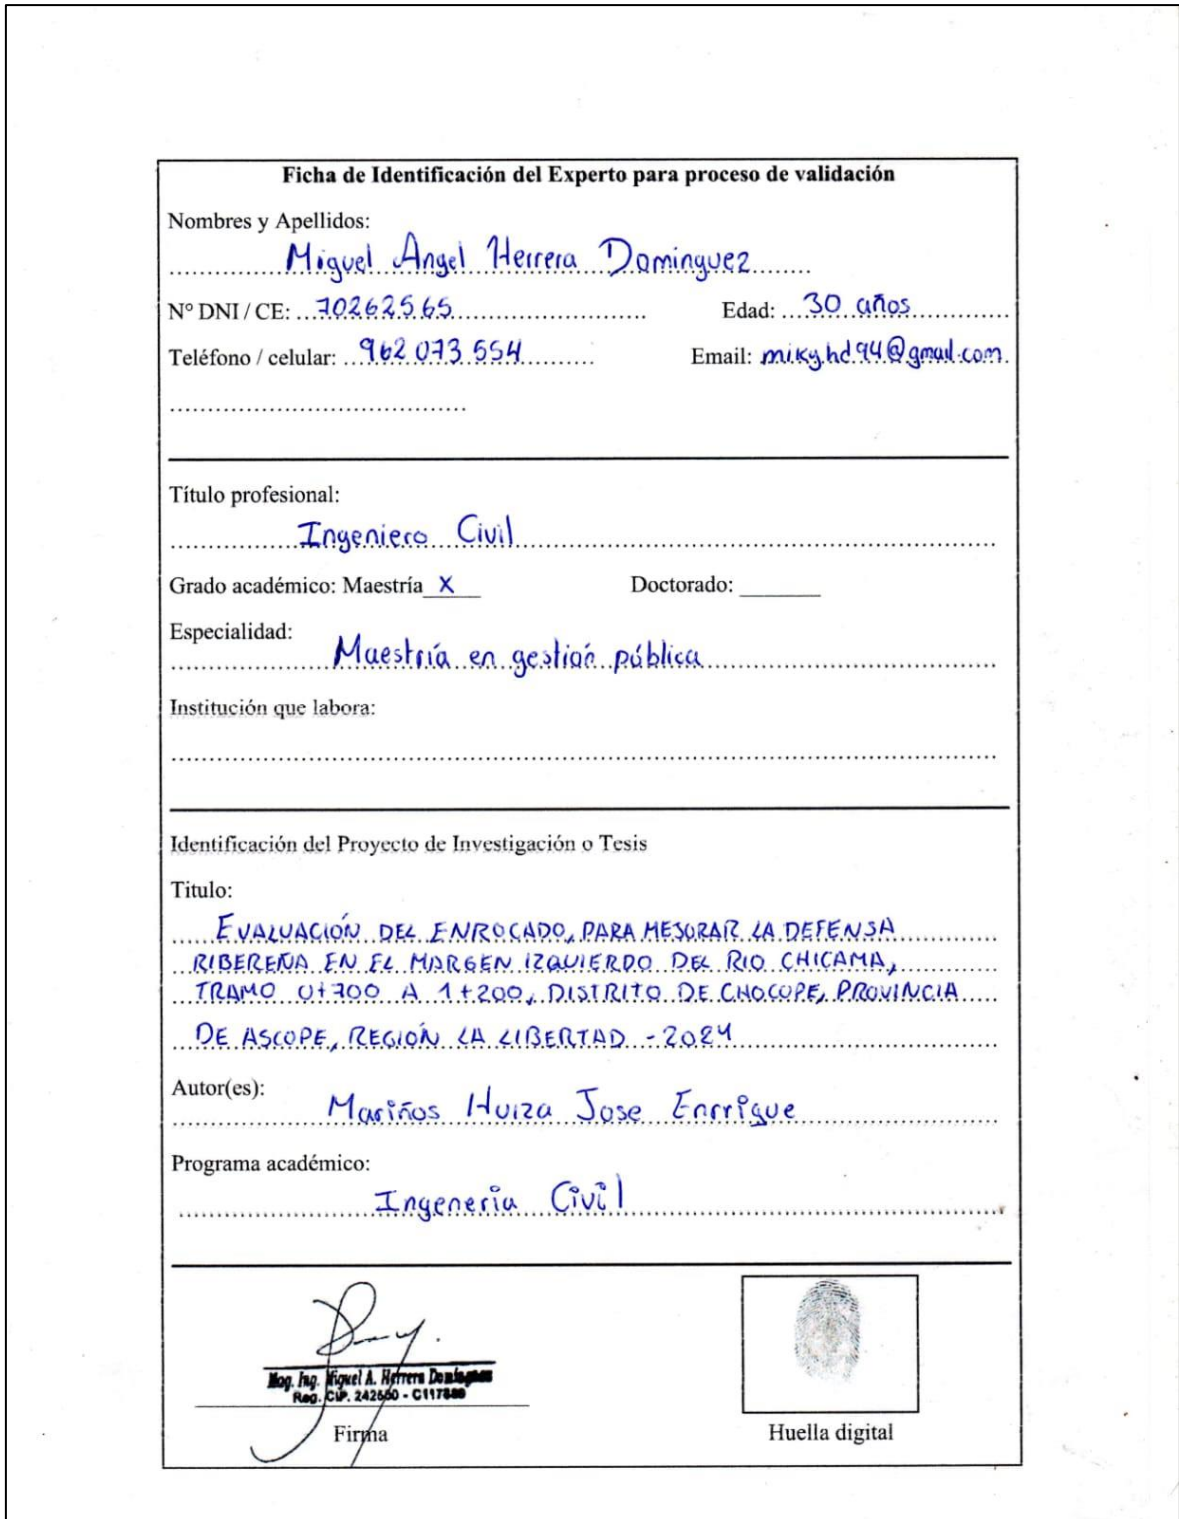 Ficha de Identificación del Experto para proceso de validación
Nombres y Apellidos:
Miguel Angel Herrera Dominguez
Nº DNI / CE: 70262565 Edad: 30 años
Teléfono / celular: 962 073 554 Email: miky.hd.94@gmail.com
Título profesional:
Ingeniero Civil
Grado académico: Maestría X Doctorado:
Especialidad:
Maestría en gestión pública
Institución que labora:
Identificación del Proyecto de Investigación o Tesis
Titulo:
EVALUACIÓN DEL ENROCADO, PARA MEJORAR LA DEFENSA
RIBEREÑA EN EL MARGEN IZQUIERDO DEL RIO CHICAMA,
TRAMO 0+700 A 1+200, DISTRITO DE CHOCOPE, PROVINCIA
DE ASCOPE, REGIÓN LA LIBERTAD - 2024
Autor(es):
Mariños Huiza Jose Enrrique
Programa académico:
Ingeneria Civil
Mag. Ing. Miguel A. Herrera Dominguez
Reg. CIP.
Firma
Huella digital